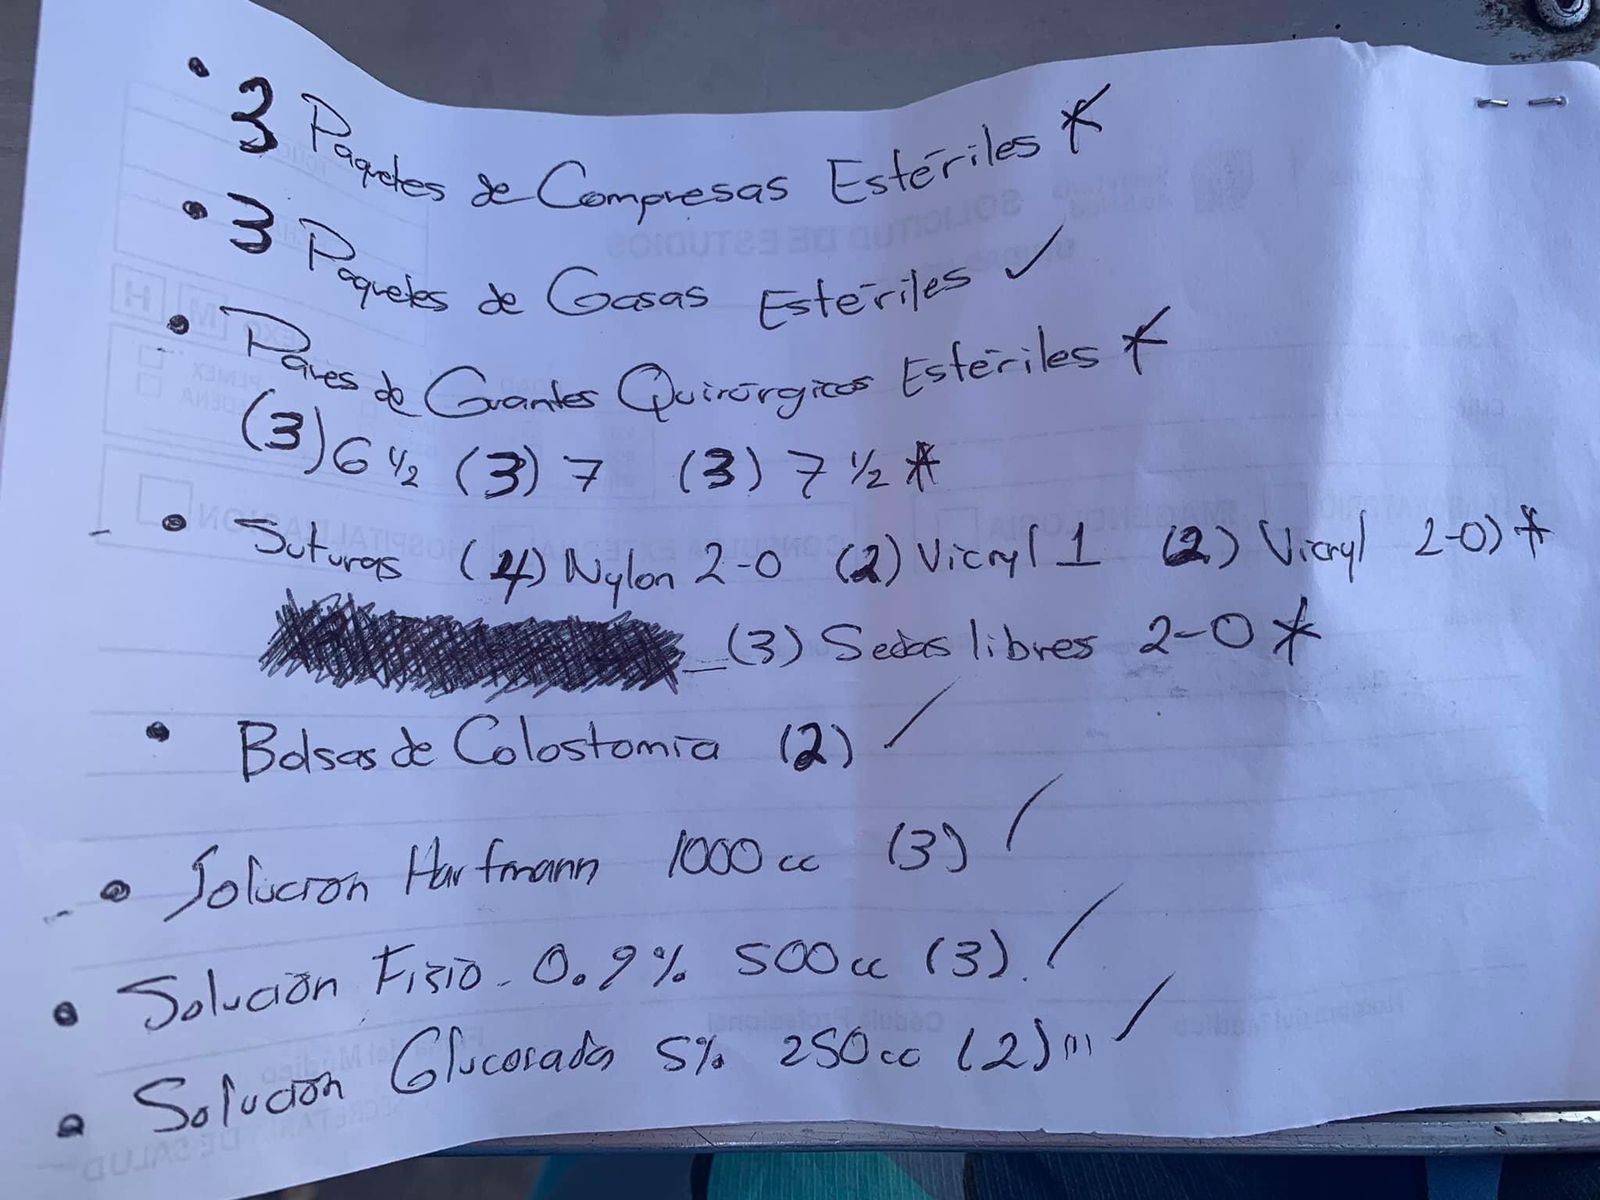 • 3 Paquetes de Compresas Estériles *
• 3 Paquetes de Gasas Estériles ✓
• Pares de Guantes Quirúrgicos Estériles *
(3) 6 ½ (3) 7 (3) 7 ½ *
• Suturas (4) Nylon 2-0 (2) Vicryl 1 (2) Vicryl 2-0) *
(3) Sedas libres 2-0 *
• Bolsas de Colostomía (2) ✓
• Solución Hartmann 1000 cc (3) ✓
• Solución Fisio. 0.9% 500 cc (3). ✓
• Solución Glucosada 5% 250 cc (2) ✓
SOLICITUD DE ESTUDIOS
M H
PEMEX
HOSPITALIZACIÓN
CONSULTA EXTERNA
IMAGENOLOGÍA
Cédula Profesional
SECRETARÍA DE SALUD